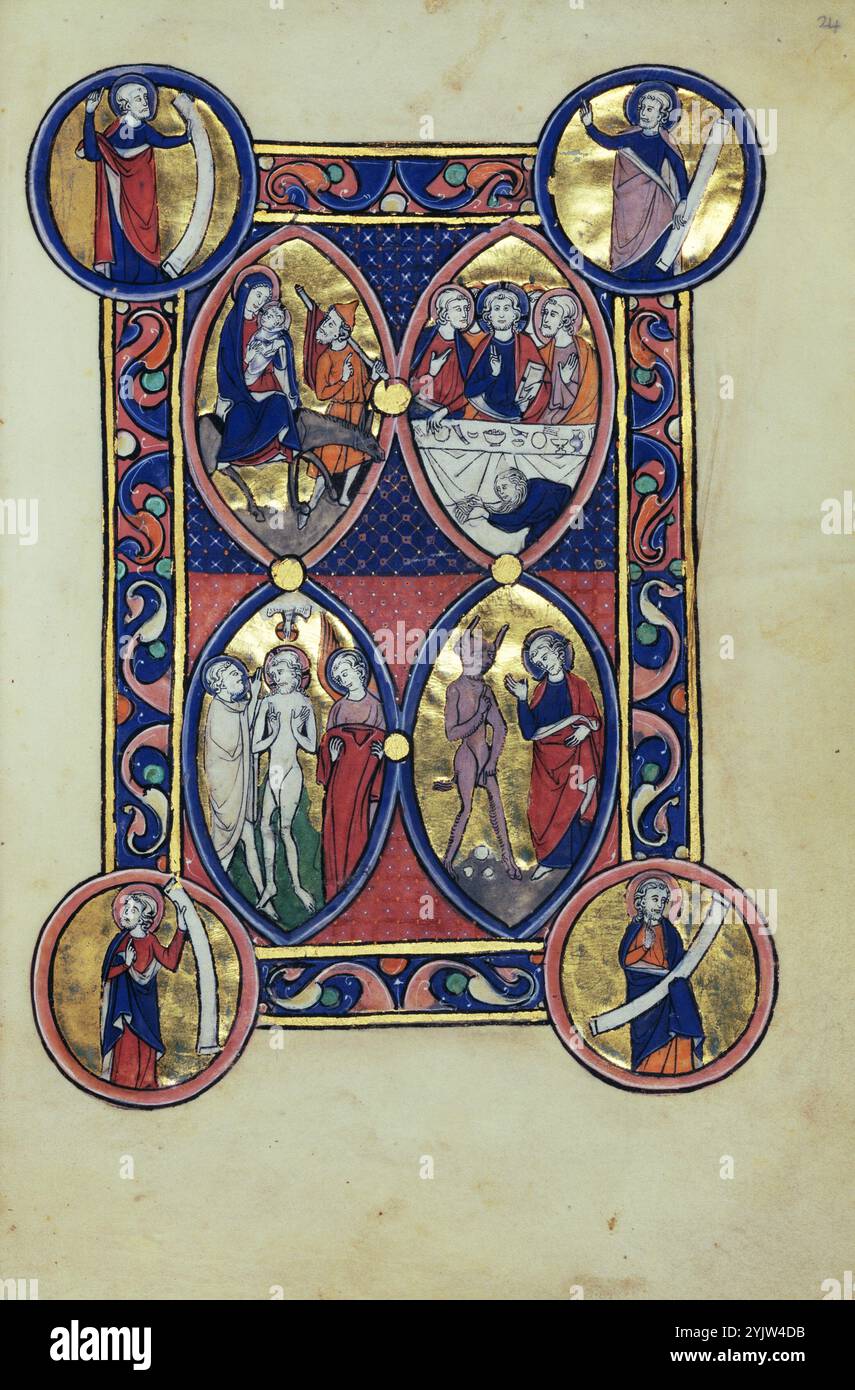 24
alamy
a
a
a
a
a
a
alamy
Image ID: 2YJW4DB
www.alamy.com